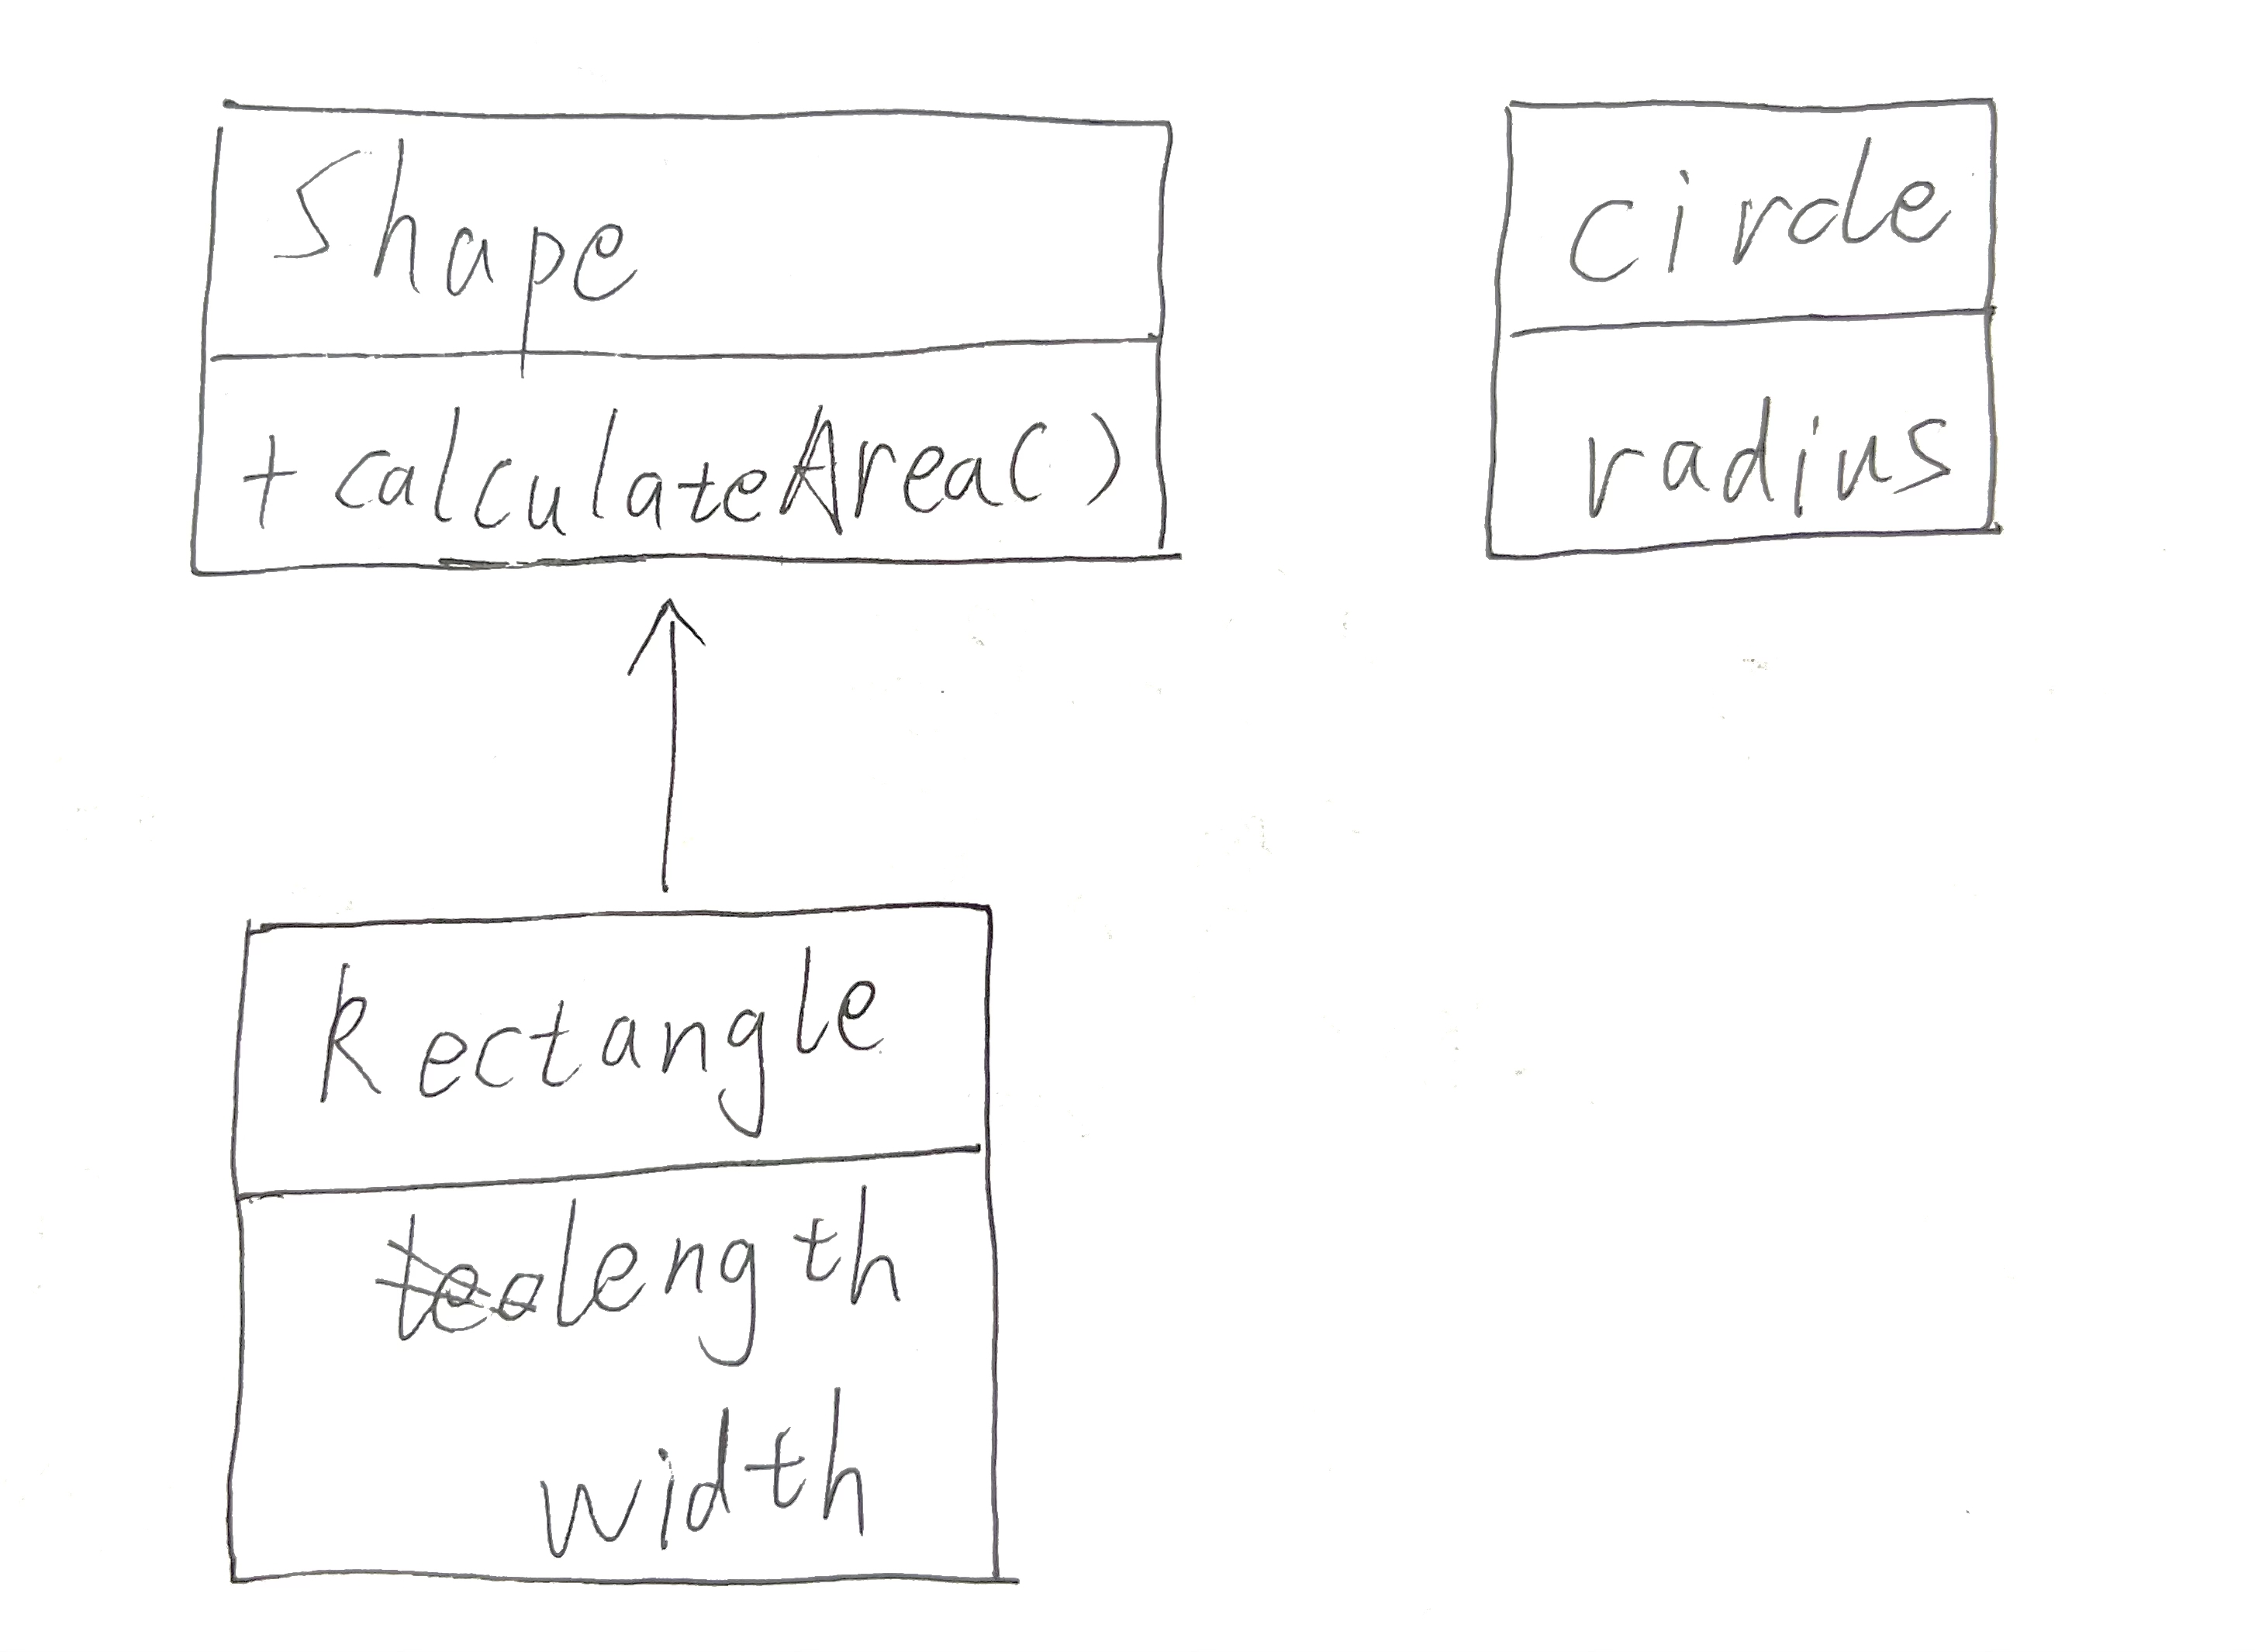 Shape
+ calculateArea()
circle
radius
Rectangle
length
width